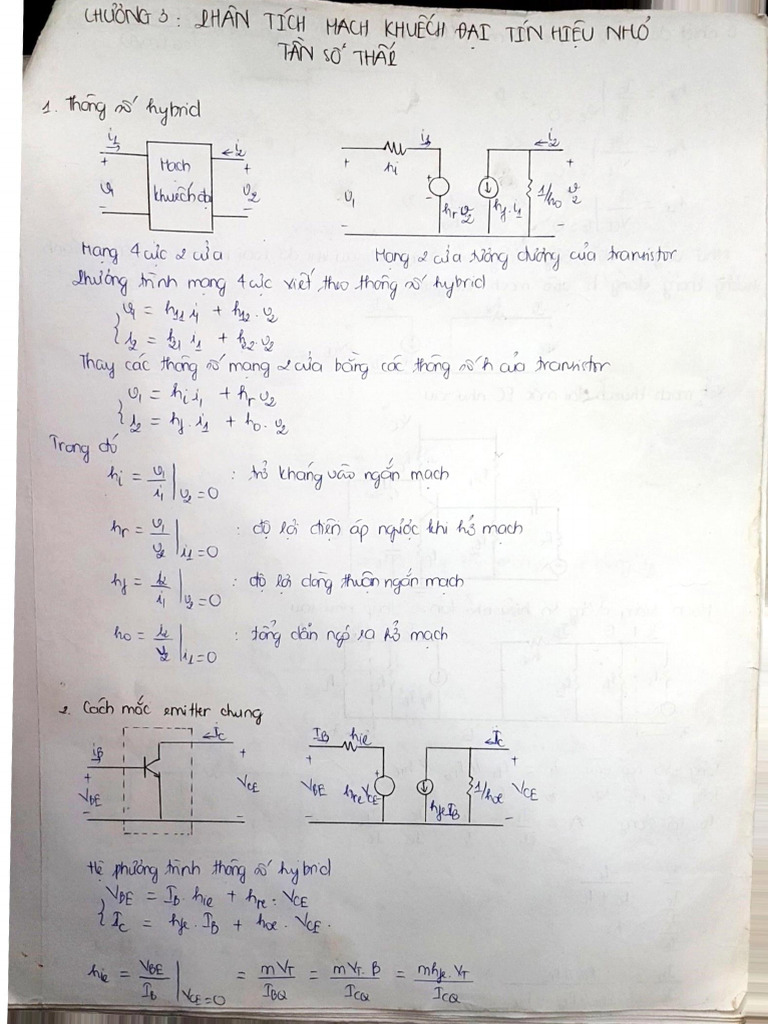 CHƯƠNG 3: PHÂN TÍCH MẠCH KHUẾCH ĐẠI TÍN HIỆU NHỎ
TẦN SỐ THẤP
1. Thông số hybrid
i₁ i₂ i₁ i₂
+ + + hi + - +
v₁ Mạch khuếch đại v₂ v₁ hr.v₂ hf.i₁ 1/ho v₂
- - - -
Mạng 4 cực 2 cửa Mạng 2 cửa tương đương của transistor
Phương trình mạng 4 cực viết theo thông số hybrid
{ v₁ = h₁₁ i₁ + h₁₂. v₂
i₂ = h₂₁ i₁ + h₂₂. v₂
Thay các thông số mạng 2 cửa bằng các thông số h của transistor
{ v₁ = hᵢ i₁ + hᵣ v₂
i₂ = h_f. i₁ + hₒ. v₂
Trong đó
hi = v₁/i₁ |v₂=0 : trở kháng vào ngắn mạch
hr = v₁/v₂ |i₁=0 : độ lợi điện áp ngược khi hở mạch
hf = i₂/i₁ |v₂=0 : độ lợi dòng thuận ngắn mạch
ho = i₂/v₂ |i₁=0 : tổng dẫn ngõ ra hở mạch
2. Cách mắc emitter chung
iB Ic IB hie Ic
+ + + + - +
VBE VCE VBE hreVCE hfeIB 1/hoe VCE
- - - -
Hệ phương trình thông số hybrid
{ VBE = IB. hie + hre. VCE
Ic = hfe. IB + hoe. VCE.
hie = VBE/IB |VCE=0 = mVT/IBQ = mVT.β/ICQ = mhfe.VT/ICQ